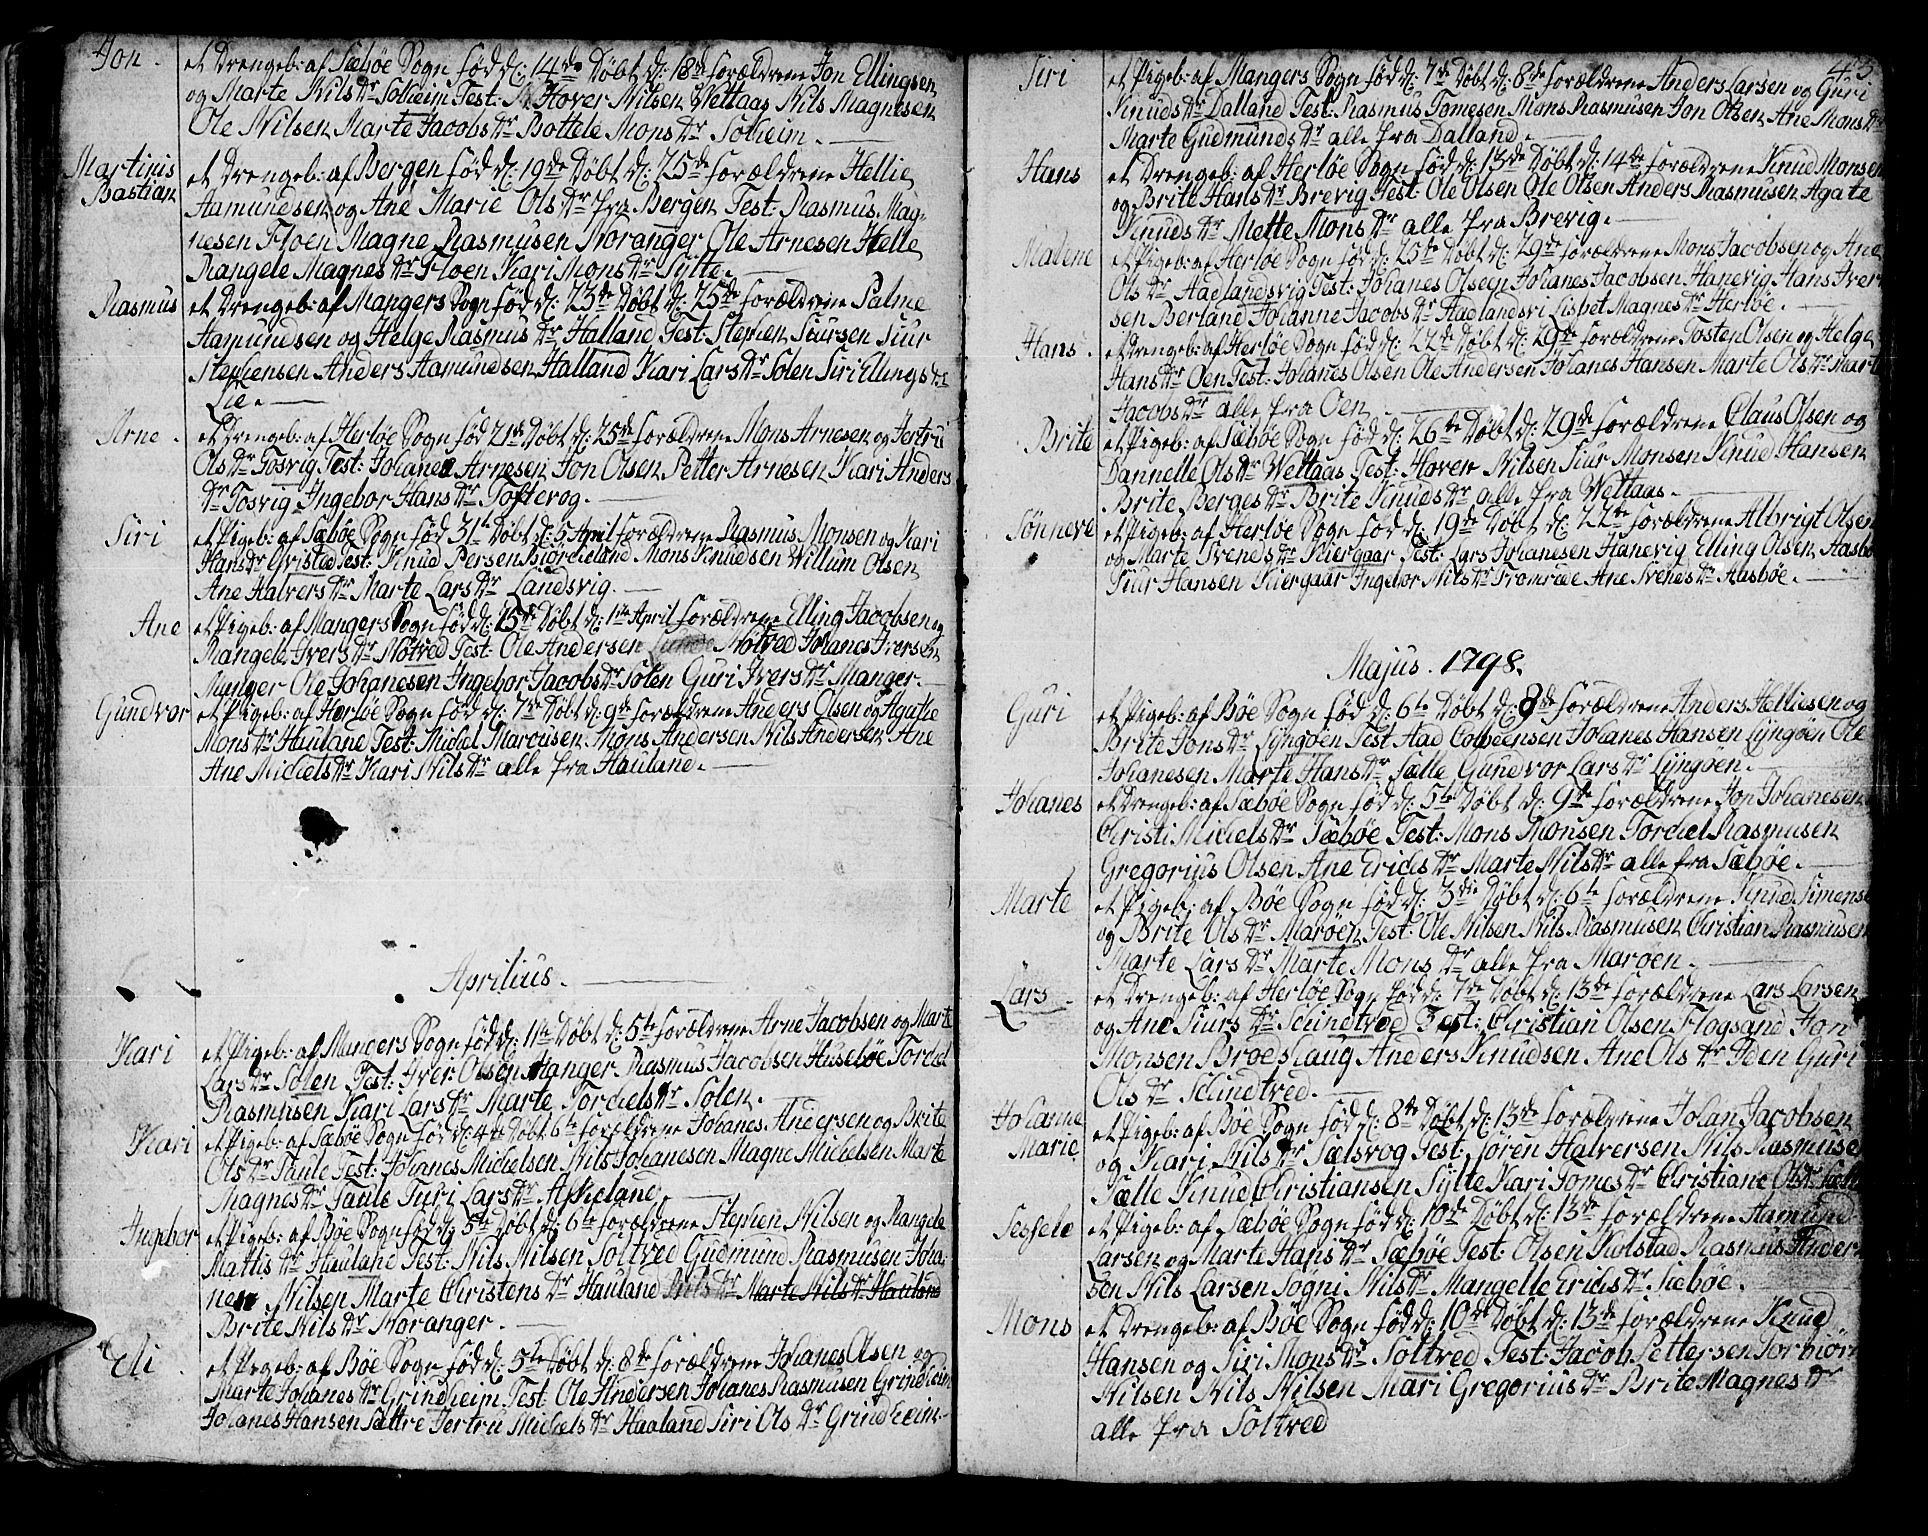 Jon. et Drengeb: af Sæbøe Sogn fød d: 14de Døbt d: 18de forældrene Jon Ellingsen
og Marte Nils Dr Solheim Test: Hover Nilsen Wettaas Nils Magnesen
Ole Nilsen Marte Jacobs Dr Bottele Mons Dr Solheim.
Martinus Bastian et Drengeb: af Bergen fød d: 19de Døbt d: 25de forældrene Hellie
Aamundsen og Ane Marie Ols Dr fra Bergen Test: Rasmus Mag-
nesen Floen Magne Rasmusen Noranger Ole Arnesen Helle
Rangele Magnes Dr Floen Kari Mons Dr Sylte.
Rasmus et Drengeb: af Mangers Sogn fød d: 23de Døbt d: 25de forældrene Palme
Hamundsen og Helge Rasmus Dr Halland Test: Stephen Siursen Siur
Stephensen Anders Aamundsen Halland Kari Lars Dr Solen Siri Ellings Dr
Lie.
Arne. et Drengeb: af Herløe Sogn fød 21de Døbt d: 25de forældrene Mons Arnesen og Jertru
Ols Dr Tosvig Test: Johanes Arnesen Jon Olsen Petter Arnesen Kari Anders
Dr Tosvig Ingebor Hans Dr Toftevog.
Siri et Pigeb: af Sæbøe Sogn fød 31te Døbt d: 5 April forældrene Rasmus Monsen og Kari
Hans Dr Qvisted Test: Knud Persen Mons Knudsen Willum Olsen
Ane Halvers Dr Marte Lars Dr Landsvig.
Ane et Pigeb: af Mangers Sogn fød d: 15de Døbt d: 1te April forældrene Elling Jacobsen og
Rangele Ivers Dr Nøtved Test: Ole Andersen Nøtved Johanes Iversen
Manger Ole Johanesen Ingebor Jacobs Dr Solen Guri Ivers Dr Manger.
Gundvor et Pigeb: af Herløe Sogn fød d: 7de Døbt d: 9de forældrene Anders Olsen og Agathe
Mons Dr Hauland Test: Michel Marcusen Mons Andersen Nils Andersen Ane
Ane Michels Dr Kari Nils Dr alle fra Hauland.
Aprilius.
Kari et Pigeb: af Mangers Sogn fød d: 1te Døbt d: 5te forældrene Arne Jacobsen og Marte
Lars Dr Solen Test: Iver Olsen Manger Rasmus Jacobsen Husebøe Torchel
Rasmusen Kari Lars Dr Marte Torchels Dr Solen.
Kari et Pigeb: af Sæbøe Sogn fød d: 4de Døbt 6te forældrene Johanes Andersen og Brite
Ols Dr Taule Test: Johanes Michelsen Nils Johanesen Magne Michelsen Marte
Magnes Dr Taule Turi Lars Dr Askeland.
Ingebor et Pigeb: af Bøe Sogn fød d: 5te Døbt d: 6te forældrene Stephen Nilsen og Rangele
Mattis Dr Hauland Test: Nils Nilsen Soltved Gudmund Rasmusen Joha-
nes Nilsen Marte Christens Dr Hauland Nils Dr Marte Nils Dr Hauland
Brite Nils Dr Noranger.
Eli. et Pigeb: af Bøe Sogn fød d: 5te Døbt d: 8de forældrene Johanes Olsen og
Marte Johanes Dr Grindheim Test: Ole Andersen Johanes Rasmusen Grindheim
Johanes Hansen Sættre Jertru Michels Dr Haaland Siri Ols Dr Grindheim.
Siri et Pigeb: af Mangers Sogn fød d: 7de Døbt d: 8de forældrene Anders Larsen og Guri
Knuds Dr Dalland Test: Rasmus Tomesen Mons Rasmusen Jon Olsen Ane Mons Dr
Marte Gudmunds Dr alle fra Dalland.
Hans et Drengeb: af Herløe Sogn fød d: 13de Døbt d: 14de forældrene Knud Monsen
og Brite Hans Dr Brevig Test: Ole Olsen Ole Olsen Anders Rasmusen Agate
Knuds Dr Mette Mons Dr alle fra Brevig.
Malene et Pigeb: af Herløe Sogn fød d: 25te Døbt d: 29de forældrene Mons Jacobsen og Ane
Ols Dr Aadlandsvig Test: Johanes Olseen Johanes Jacobsen Hanevig Hans Iver
sen Berland Johanne Jacobs Dr Aadlandsvi Lisbet Magnes Dr Herløe.
Hans. et Drengeb: af Herløe Sogn fød d: 22de Døbt d: 29de forældrene Tosten Olsen og Helge
Hans Dr Oen Test: Johanes Olsen Ole Andersen Johanes Hansen Marte Ols Dr Marte
Jacobs Dr alle fra Oen.
Brite et Pigeb: af Sæbøe Sogn fød d: 26te Døbt d: 29de forældrene Claus Olsen og
Dannelle Ols Dr Wettaas Test: Hover Nilsen Siur Monsen Knud Hansen
Brite Berges Dr Brite Knuds Dr alle fra Wettaas.
Sønneve et Pigeb: af Herløe Sogn fød d: 19de Døbt d: 22te forældrene Albrigt Olsen
og Marte Svends Dr Skiergaar Test: Lars Johanesen Hanevig Elling Olsen Aasbøe
Siur Hansen Skiergaar Ingebor Nils Dr Ane Svends Dr Aasbøe.
Majus. 1798.
Guri et Pigeb: af Bøe Sogn fød d: 6te Døbt d: 8de forældrene Anders Helliesen og
Brite Jons Dr Lyngøen Test Aad Colbeensen Johanes Hansen Lyngøen Ole
Johanesen Marte Hans Dr Sælle Gundvor Lars Dr Lyngøen.
Johanes et Drengeb: af Sæbøe Sogn fød d: 5te Døbt d: 9de forældrene Jon Johanesen
Christi Michels Dr Sæbøe Test: Mons Monsen Torchel Rasmusen
Gregorius Olsen Ane Erichs Dr Marte Nils Dr alle fra Sæbøe.
Marte et Pigeb: af Bøe Sogn fød d: 3die Døbt d: 6te forældrene Knud Simense
og Brite Ols Dr Marøen Test: Ole Nilsen Nils Rasmusen Christian Rasmusen
Marte Lars Dr Marte Mons Dr alle fra Marøen.
Lars. et Drengeb: af Herløe Sogn fød d: 7de Døbt d: 13de forældrene Lars Larsen
og Ane Siurs Dr Schindtved Test: Christian Olsen Flogsand Jon
Monsen Anders Knudsen Ane Ols Dr Iden Guri
Ols Dr Schindtved.
Johanne Marie et Pigeb: af Bøe Sogn fød d: 8de Døbt d: 13de forældrene Johan Jacobsen
og Kari Nils Dr Sælsvog Test: Søren Halversen Nils Rasmuse
Sælle Knud Christiansen Sylte Kari Tomes Dr Christiane Ols Dr
Sessele et Pigeb: af Sæbøe Sogn fød d: 10de Døbt d: 13de forældrene Hamund
Larsen og Marte Hans Dr Sæbøe Test: Olsen Kolstad Rasmus Ander-
sen Nils Larsen Sogni Nils Dr Mangelle Erichs Dr Sæbøe.
Mons et Drengeb: af Bøe Sogn fød d: 10de Døbt d: 13de forældrene Knud
Hansen og Siri Mons Dr Soltved Test: Jacob Pettersen Torbiørn
Nilsen Nils Nilsen Mari Gregorius Dr Brite Magnes Dr
alle fra Soltved